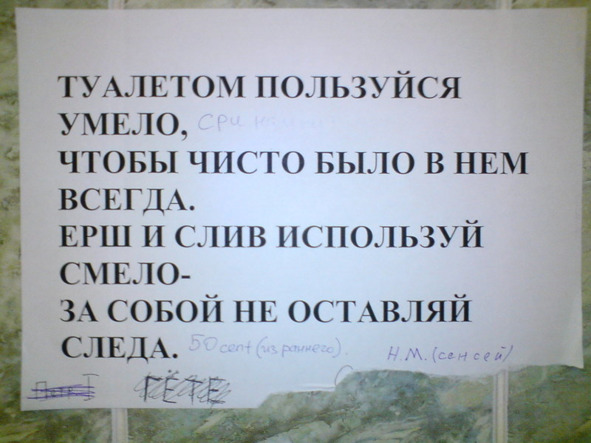 ТУАЛЕТОМ ПОЛЬЗУЙСЯ
УМЕЛО, СРИ
ЧТОБЫ ЧИСТО БЫЛО В НЕМ
ВСЕГДА.
ЕРШ И СЛИВ ИСПОЛЬЗУЙ
СМЕЛО-
ЗА СОБОЙ НЕ ОСТАВЛЯЙ
СЛЕДА. 50 cent (из раннего).
Н.М. (сенсей)
ГЁТЕ